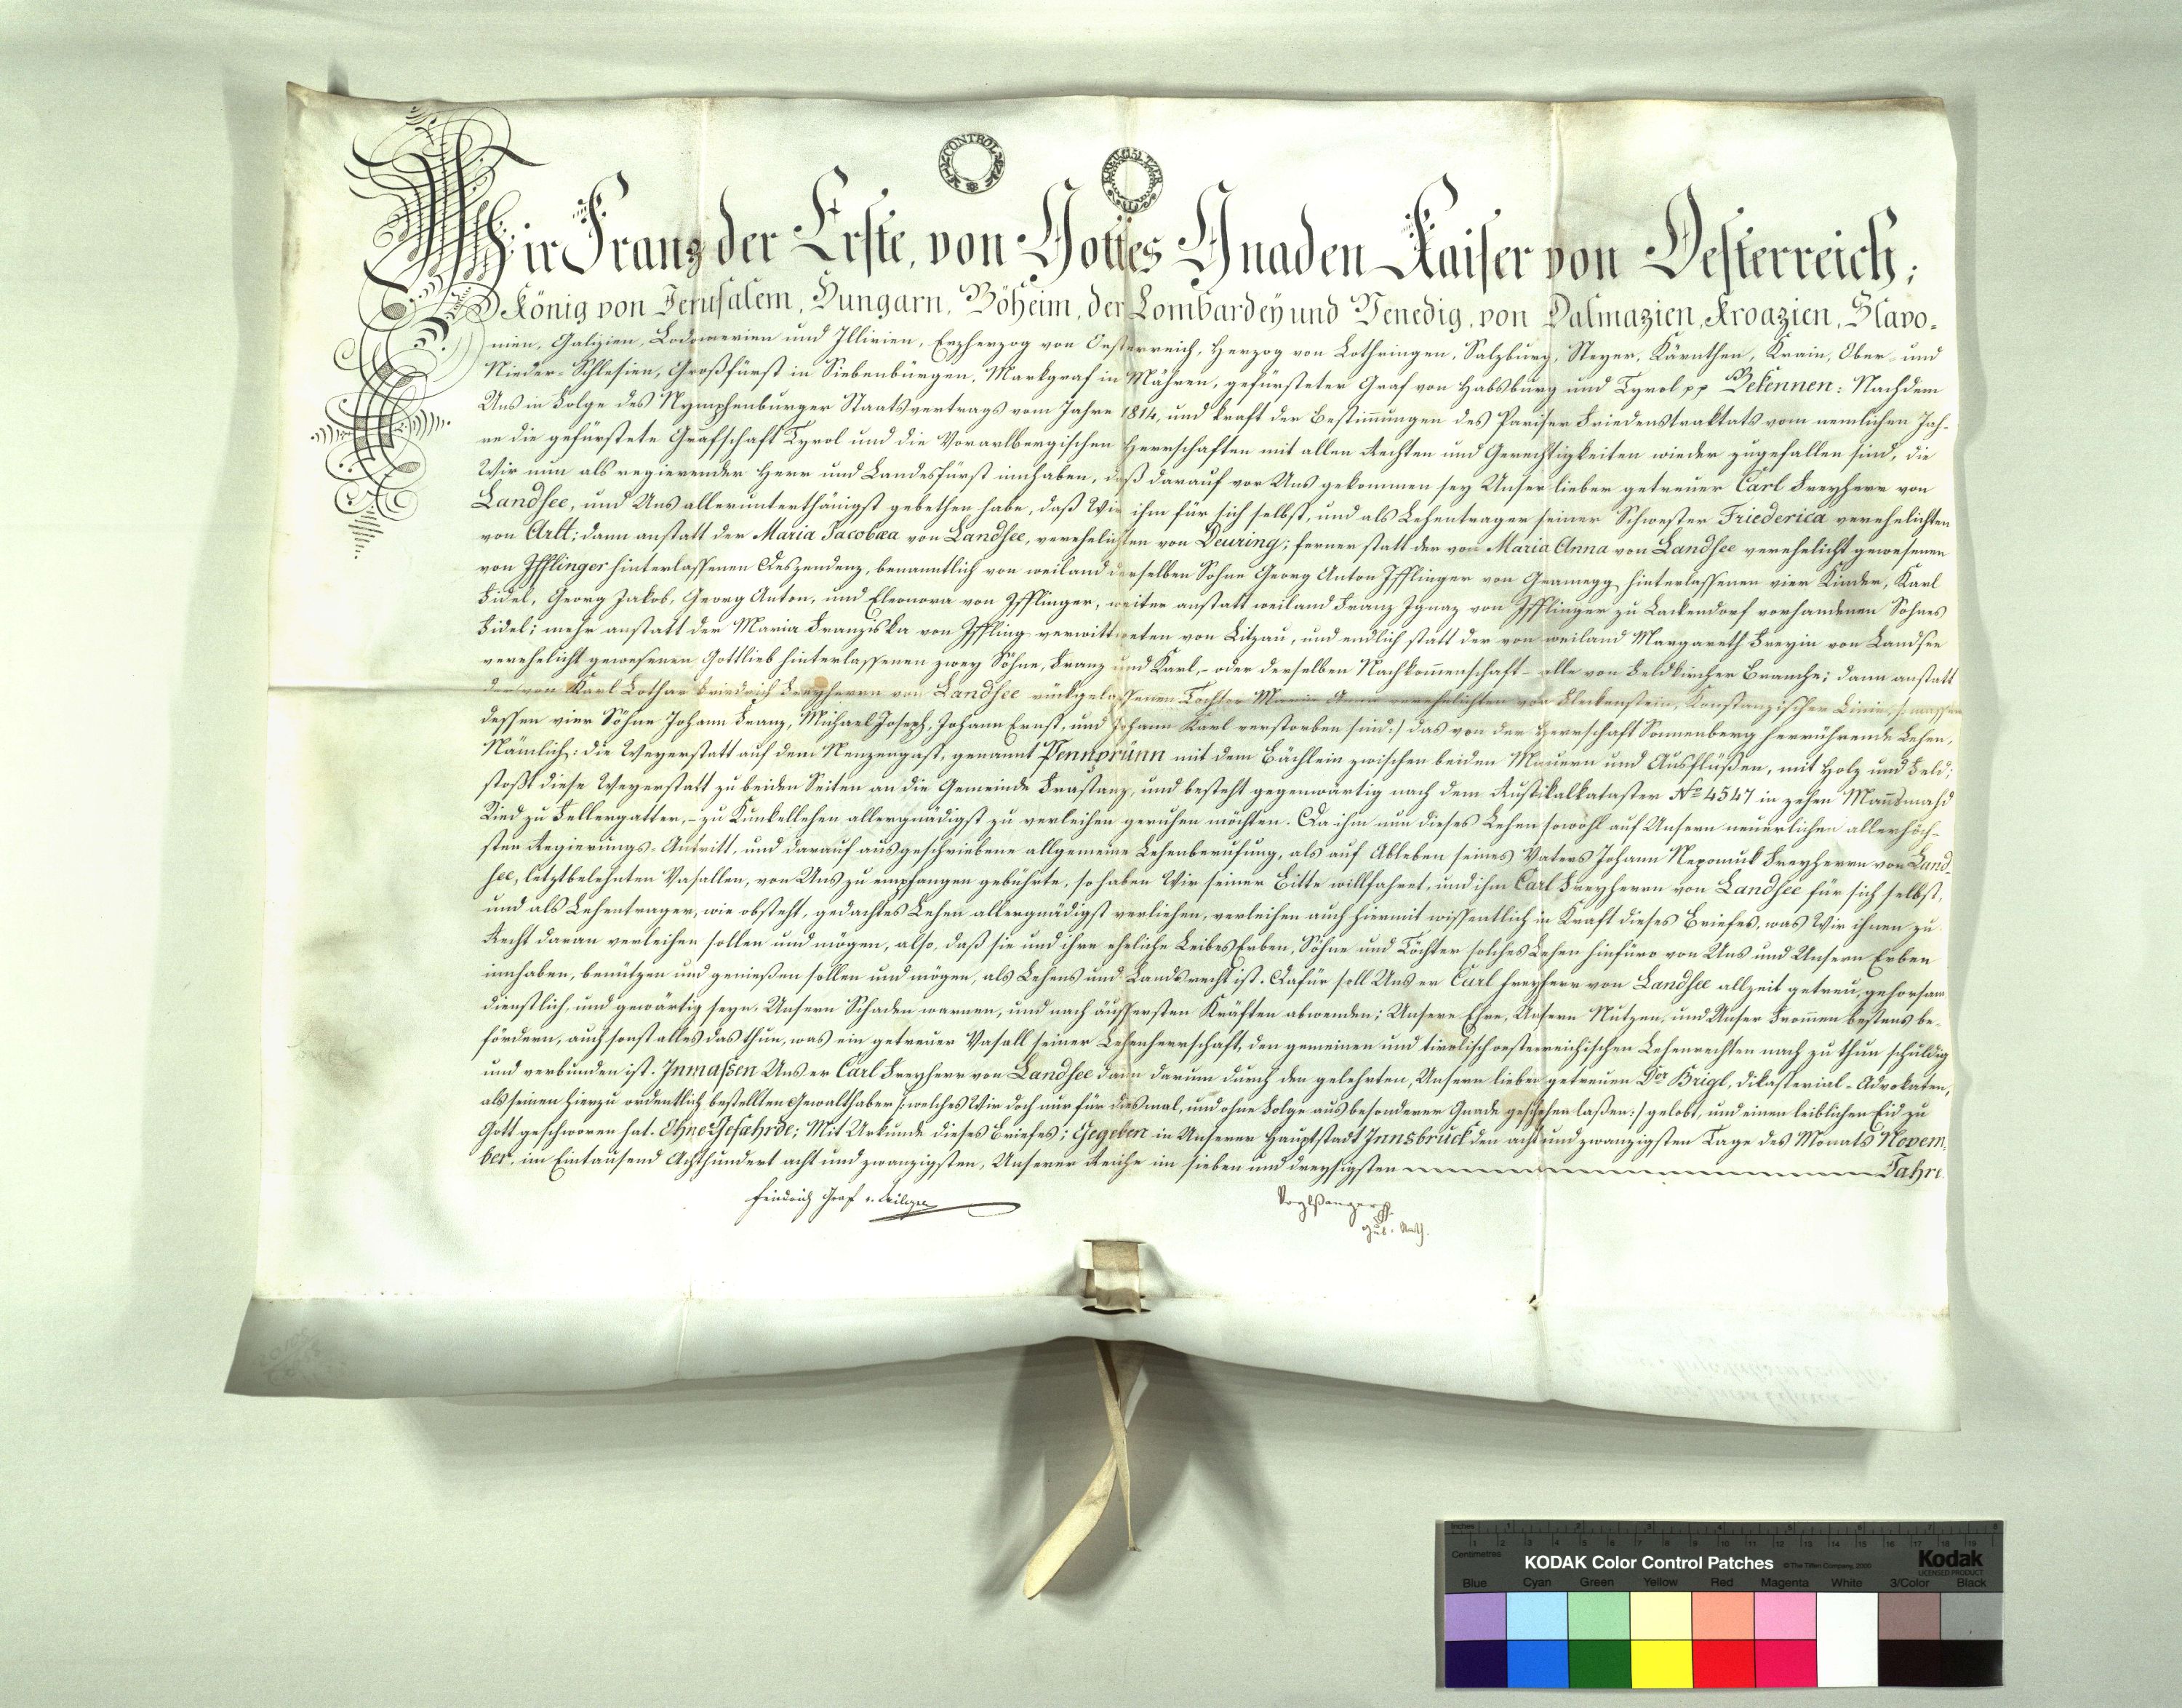 CONTROL
Wir Franz der Erste, von Gottes Gnaden Kaiser von Oesterreich;
König von Jerusalem, Hungarn, Böheim, der Lombardey und Venedig, von Dalmazien, Kroazien, Slavo-
nien, Galizien, Lodomerien und Illirien, Erzherzog von Oesterreich, Herzog von Lothringen, Salzburg, Steyer, Kärnthen, Krain, Ober- und
Nieder-Schlesien, Großfürst in Siebenbürgen, Markgraf in Mähren, gefürsteter Graf von Habsburg und Tyrol pp Bekennen: Nachdem
Uns in Folge des Nymphenburger Staatsvertrags vom Jahre 1814, und kraft der Bestim̄ungen des Pariser Friedenstraktats vom nemlichen Jah-
re die gefürstete Grafschaft Tyrol und die Vorarlbergischen Herrschaften mit allen Rechten und Gerechtigkeiten wieder zugefallen sind, die
Wir nun als regierender Herr und Landesfürst innhaben, daß darauf vor Uns gekommen sey Unser lieber getreuer Carl Freyherr von
Landsee, und Uns allerunterthänigst gebethen habe, daß Wir ihm für sich selbst, und als Lehentrager seiner Schwester Friederica verehelichten
von Arlt; dann anstatt der Maria Jacobæa von Landsee, verehelichten von Deuring; ferner statt der von Maria Anna von Landsee verehelicht gewesenen
von Ifflinger hinterlassenen Deszendenz, benanntlich von weiland derselben Sohne Georg Anton Ifflinger von Gramegg hinterlassenen vier Kinder, Karl
Fidel, Georg Jakob, Georg Anton, und Eleonora von Ifflinger, weiter anstatt weiland Franz Ignaz von Ifflinger zu Lackendorf vorhandenen Sohnes
Fidel; mehr anstatt der Maria Franziska von Iffling verwittweten von Litzau, und endlich statt der von weiland Margareth Freyin von Landsee
verehelicht gewesenen Gottlieb hinterlassenen zwey Söhne, Franz und Karl, - oder derselben Nachkom̄enschaft - alle von Feldkircher Branche; dann anstatt
der von Karl Lothar Friedrich Freyherrn von Landsee rückgelassenen Tochter Maria Anna verehelichten von Fleckenstein, Konstanzischer Linie, /: massen
dessen vier Söhne Johann Franz, Michael Joseph, Johann Ernst, und Johann Karl verstorben sind :/ das von der Herrschaft Sonnenberg herrührende Lehen,
Nämlich: die Weyerstatt auf dem Nenzengast, genannt Pennprünn mit dem Bächlein zwischen beiden Mauern und Ausflüßen, mit Holz und Feld;
stoßt diese Weyerstatt zu beiden Seiten an die Gemeinde Frastanz, und besteht gegenwärtig nach dem Rustikalkataster No 4547 in zehen Man̄smahd
Ried zu Fellergatter, - zu Kunkellehen allergnädigst zu verleihen geruhen möchten. Da ihm nun dieses Lehen sowohl auf Unsern neuerlichen allerhöch-
sten Regierungs-Antritt, und darauf ausgeschriebene allgemeine Lehenberufung, als auf Ableben seines Vaters Johann Nepomuk Freyherrn von Land-
see, letztbelehnten Vasallen, von Uns zu empfangen gebührte, so haben Wir seiner Bitte willfahret, und ihm Carl Freyherrn von Landsee für sich selbst,
und als Lehentrager, wie obsteht, gedachtes Lehen allergnädigst verliehen, verleihen auch hiermit wissentlich in Kraft dieses Briefes, was Wir ihnen zu
Recht daran verleihen sollen und mögen, also, daß sie und ihre eheliche Leibes Erben, Söhne und Töchter solches Lehen hinfüro von Uns und Unsern Erben
innhaben, benützen und genießen sollen und mögen, als Lehens und Landsrecht ist. Dafür soll Uns er Carl Freyherr von Landsee allzeit getreu, gehorsam,
dienstlich, und gewärtig seyn, Unsern Schaden warnen, und nach äussersten Kräften abwenden; Unsere Ehre, Unsern Nutzen, und Unser From̄en bestens be-
fördern, auch sonst alles das thun, was ein getreuer Vasall seiner Lehenherrschaft, den gemeinen und tirolisch oesterreichischen Lehenrechten nach zu thun schuldig
und verbunden ist. Inmaßen Uns er Carl Freyherr von Landsee dann darum durch den gelehrten, Unsern lieben getreuen Dor Brigl, Dikasterial-Advokaten,
als seinen hierzu ordentlich bestellten Gewalthaber /: welches Wir doch nur für diesmal, und ohne Folge aus besonderer Gnade geschehen laßen :/ gelobt, und einen leiblichen Eid zu
Gott geschworen hat. Ohne Gefährde; Mit Urkunde dieses Briefes; Gegeben in Unserer Hauptstadt Innsbruck den acht und zwanzigsten Tage des Monats Novem-
ber, im Eintausend Achthundert acht und zwanzigsten, Unserer Reiche im sieben und dreyßigsten Jahre.
Friedrich Graf v. Wilczek
Gub. Rath.
Inches
Centimetres
KODAK Color Control Patches © The Tiffen Company, 2000
Kodak
LICENSED PRODUCT
Blue Cyan Green Yellow Red Magenta White 3/Color Black